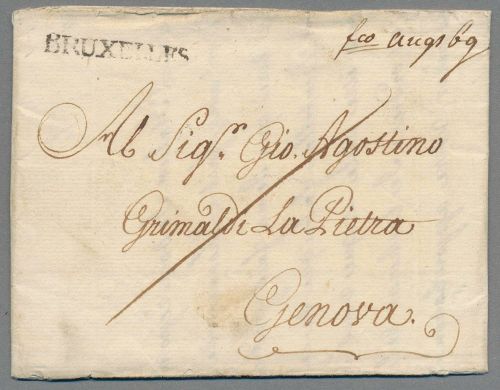 BRUXELLES
fco Augsbg
Al Sigr. Gio. Agostino
Grimaldi La Pietra
Genova.